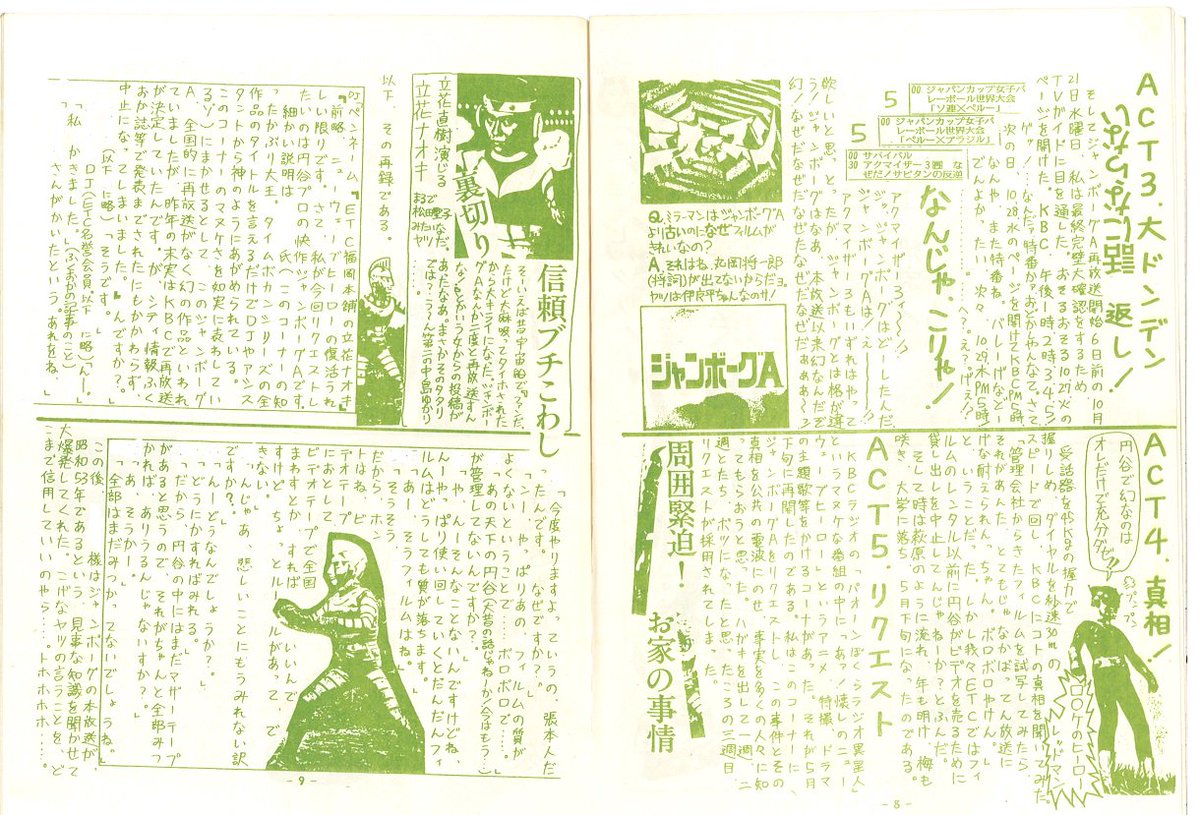 ACT3.大ドンデン
返し!
そしてジャンボーグA再放送開始6日前の10月
21日水曜日、私は最終完璧大確認をするため、
TVガイドに目を通した。おそるおそる10.27火の
ページを開けた。KBC 午後1時、2時、3、4、5!
次の日 10.28.水のページを開けてKBC.PM5時、
5 00 ジャパンカップ女子バ
レーボール世界大会
「ソ連×ペルー」
5 00 ジャパンカップ女子バ
レーボール世界大会
「ペルー×ブラジル」
00 サバイバル
30 アクマイザー3 再 な
ぜだ!ザビタンの反逆
なんじゃ、こりゃ!
アクマイザー3
ジャンボーグはどーしたんだ、
ジャンボーグAは!
アクマイザー3もいずれはやって
欲しいと思
う!ジャンボーグAとは格が違
グはなあ、本放送以来幻なんだぞ
幻!なぜだなぜだなぜだ
Q.ミラーマンはジャンボーグA
より古いのになぜフィルムが
きれいなの?
A.それはね、丸岡将一郎
が出てないからだョ。
ヤツは伊良平ちゃんなのサ!
ジャンボーグA
ACT4.真相!
円谷で幻なのは
オレだけで充分だ!!
受話器を45kgの握力で
握りしめ、ダイヤルを秒速30mの
スピードで回し、KBCにコトの真相を聞いてみた。
「管理会社からきたフィルムを試写してみたら、
それがあんた、とてもじゃなかばってん放送に
耐えられんちゃん。ボロボロやけん。」
ということだった。しかし我々ETCではフィ
ルムのレンタル以前に円谷がビデオを売るために
貸し出しを中止してんじゃねーか?とふんだ。
そして時は萩原のように流れ、年も明け、梅も
咲き、大学に落ち、5月下旬になったのである。
レッドマン
ACT5.リクエスト
KBCラジオの「パオーンぼくらラジオ異星人」
というマヌケな番組の中に「あっ!懐しのニュー
ウェーブヒーロー」というアニメ、特撮、ドラマ
の主題歌等をかけるコーナーがあった。それが5月
下旬に再開したのである。私はこのコーナーに
ジャンボーグAをリクエストし、この事件とその
真相を公共の電波にのせ、事実を多くの人々に知
ってもらおうと思った。ハガキを出して一週、二
週たち、ボツになったと思ったころの三週目
リクエストが採用されてしまった。
周囲緊迫! お家の事情
- 8 -
立花直樹演じる
立花ナオキ
裏切り
信頼ブチこわし
以下、その再録である。
DJ「ペンネーム『ETC福岡本舗の立花ナオキ』
『前略 ニューウェーブヒーローの復活うれ
しい限りです。さて、私が今回リクエストし
たいのは円谷プロの快作ジャンボーグAです。
細かい説明は 氏へこのコーナーの知
ったかぶり大王。タイムボカンシリーズの全
作品のタイトルを言えるだけでDJやアシス
タントから神のようにあがめられている。
このコーナーのマヌケさを如実に表わしてい
るゾ)にまかせるとして、このジャンボーグ
A、全国的に再放送がなく幻の作品といわれ
ていましたが、昨年の末実はKBCで再放送
が決定していたんです。が、シティ情報ふく
おか誌等で発表までされたにもかかわらず、
中止になってしまいました。なんですか?。
(以下 に略)』そうです。」
DJ(ETC名誉会員以下 に略)「んー。」
「私 かきました。」(ふくおかの記事のこと)
「 さんがかいたというあれをね、」
「今度やりますよっていうの、張本人だ
ったんです。なぜですか?。」
「ンー、やっぱりあの、フィルムの質が
よくないということで……ボロボロで……。」
「あの天下の円谷(大昔の話じゃねーか/今はもう…)
が管理してるもんなんですか?。」
「や、んーそんなことないんですけどね、
んーやっぱり使い回していくとだんだんフィ
ルムはどうしても質が落ちます。」
「あー、そうフィルムはね。」
「そうそう。
だから、ホン
トはね、ビ
デオテープ
におとして
ビデオテープで全国
まわすとか、すれば いいんで
すけど、ちょっとルールがあって、で
きない。」
「んじゃあ、悲しいことにもうみれない訳
ですか?。」
「んー、どうなんでしょうか?。」
「どうにかすればみれる。」
「だから、円谷の中にはまだマザーテープ
があると思うので、それがちゃんと全部みつ
かれば、ありうるんじゃないすか?。」
「あ、そうかー。」
「全部はまだみつかってないでしょうね。」
この後、 様はジャンボーグの本放送が
昭和53年であるという、見事な知識を聞かせて
大爆発してくれた。こげなヤツの言うことを、ど
こまで信用していいのやら……トホホホ……。
- 9 -